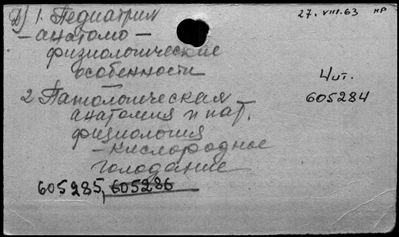 Д) 1. Педиатрия
27. VIII. 63 нр
– анатомо –
физиологические
особенности
—
4 шт.
605284
2 Патологическая
анатомия и пат.
физиология
– кислородное
голодание
605285, 605286